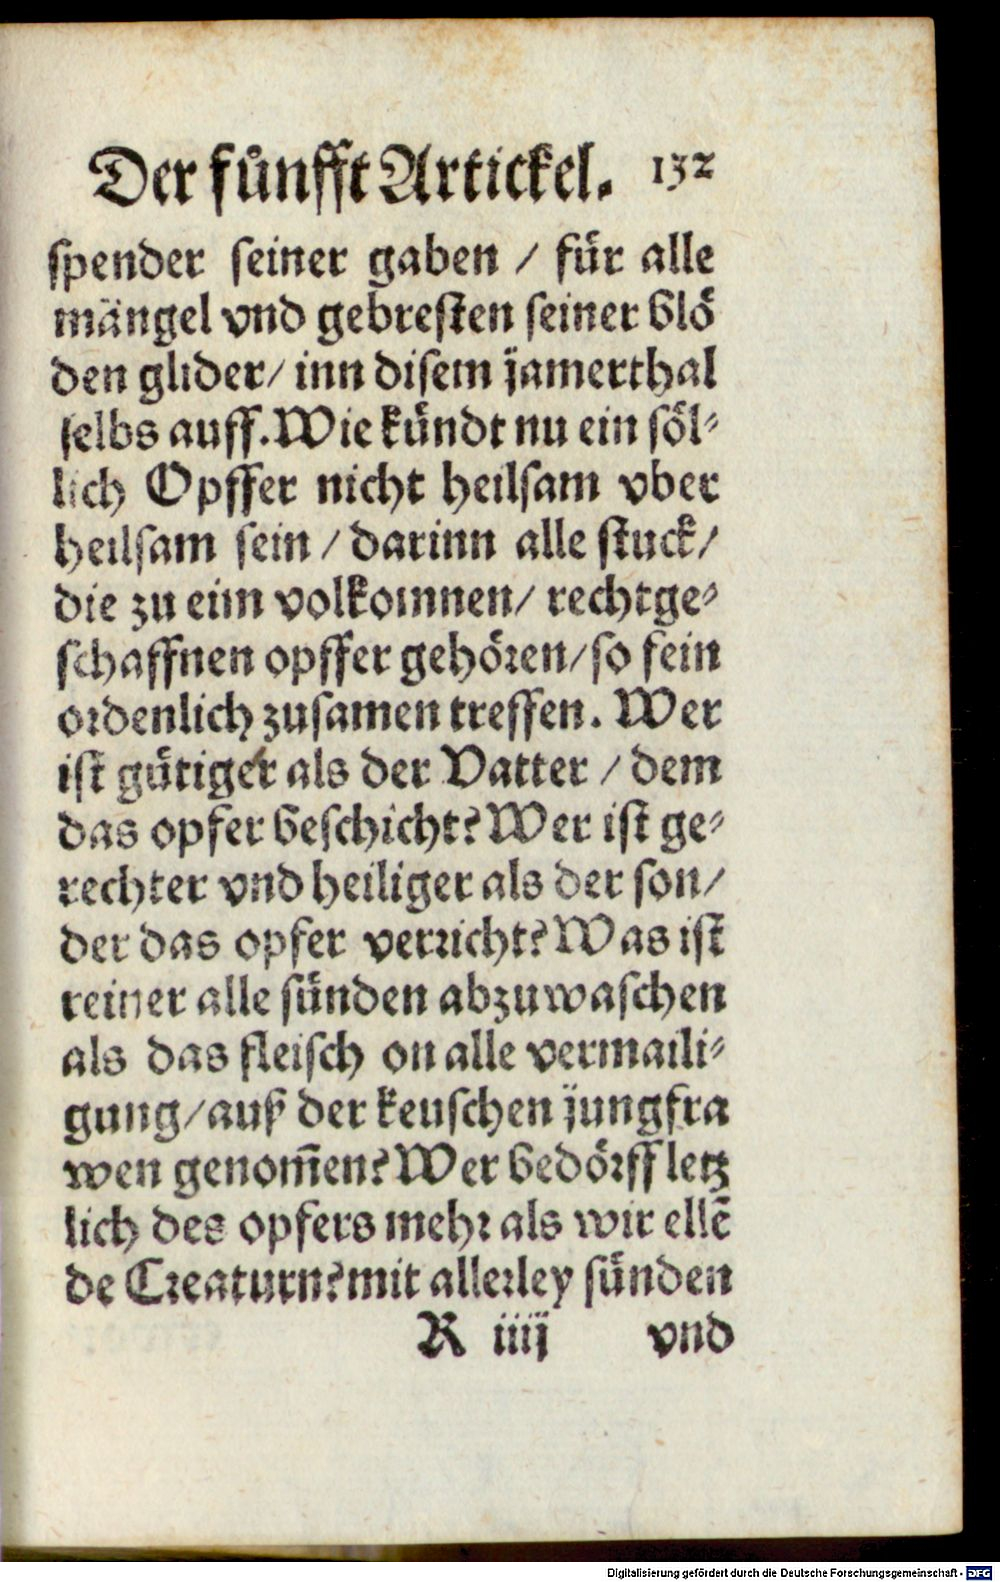 Der fuͤnfft Artickel. 132
spender seiner gaben / fuͤr alle
maͤngel vnd gebresten seiner bloͤ
den glider/ inn disem jamerthal
selbs auff. Wie kuͤndt nu ein soͤl⸗
lich Opffer nicht heilsam vber
heilsam sein / darinn alle stuck/
die zu eim volkomnen/ rechtge⸗
schaffnen opffer gehoͤren/ so fein
ordenlich zusamen treffen. Wer
ist guͤtiger als der Vatter / dem
das opfer beschicht? Wer ist ge⸗
rechter vnd heiliger als der son/
der das opfer verricht? Was ist
reiner alle suͤnden abzuwaschen
als das fleisch on alle vermaili⸗
gung/ auß der keuschen jungfra
wen genom̃en? Wer bedoͤrff letz
lich des opfers mehr als wir ellẽ
de Creaturn? mit allerley suͤnden
R iiij vnd
Digitalisierung gefördert durch die Deutsche Forschungsgemeinschaft - DFG